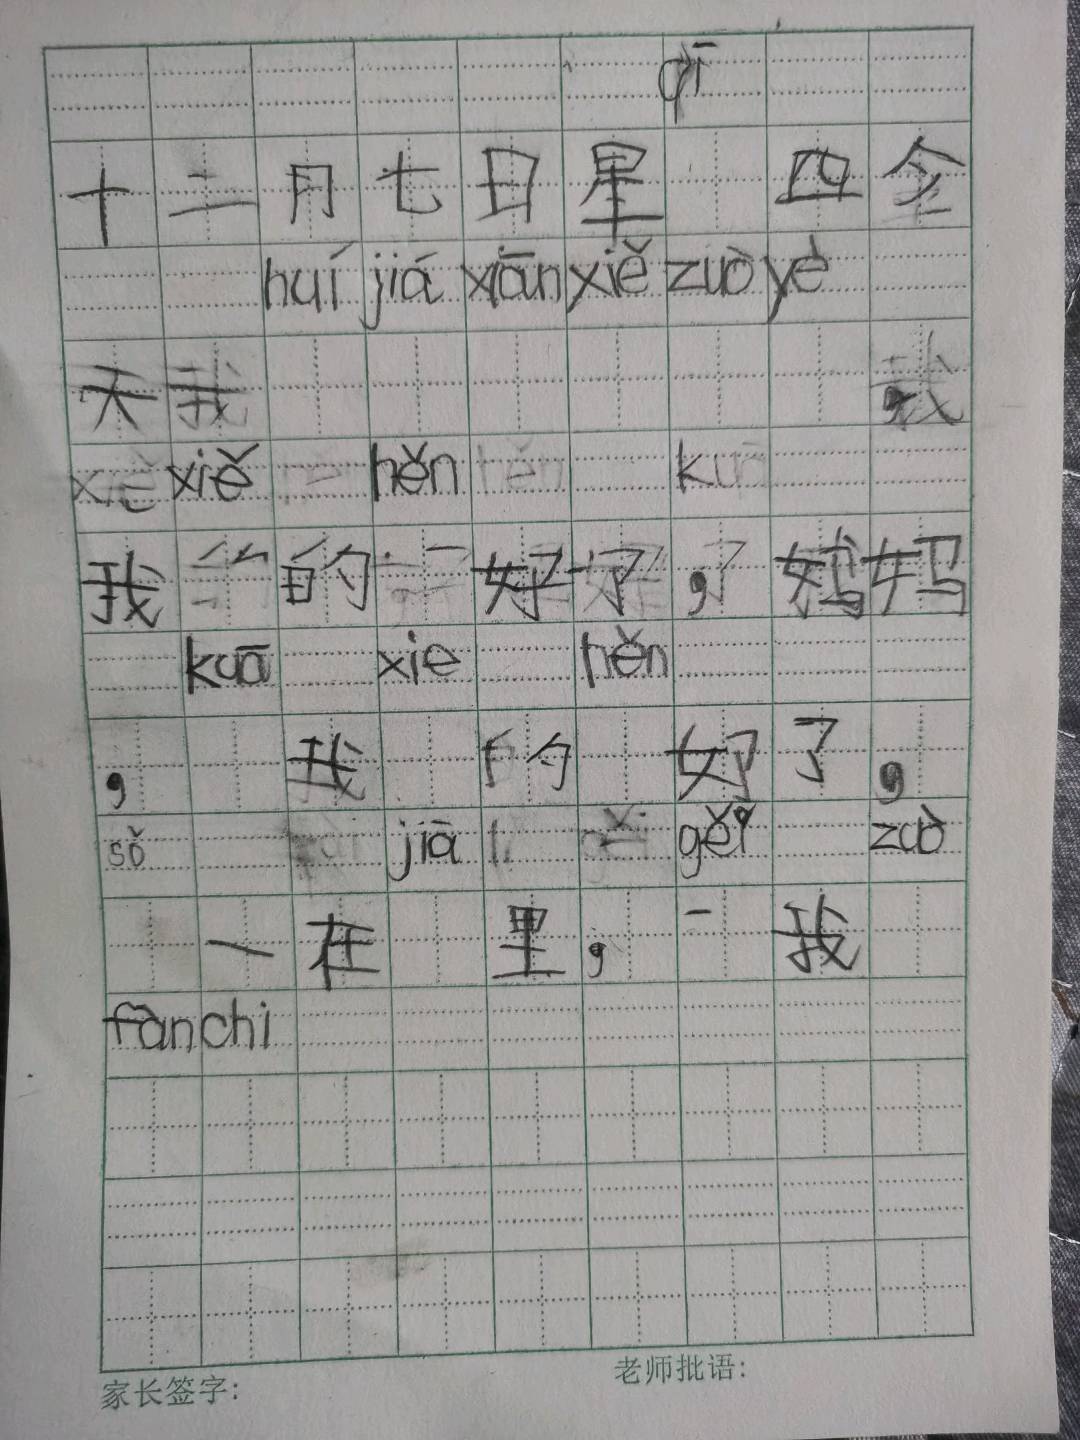 qī
十二月七日星 四今
huí jiá xiān xiě zuò yè
天我 ,我
xiě xiě hěn hěn kuā
我 的 好了,妈妈
kuā xie hěn
, 我 的 好了,
sǒ jiā gěi zuò
一在 里, 一 我
fàn chi
家长签字: 老师批语: